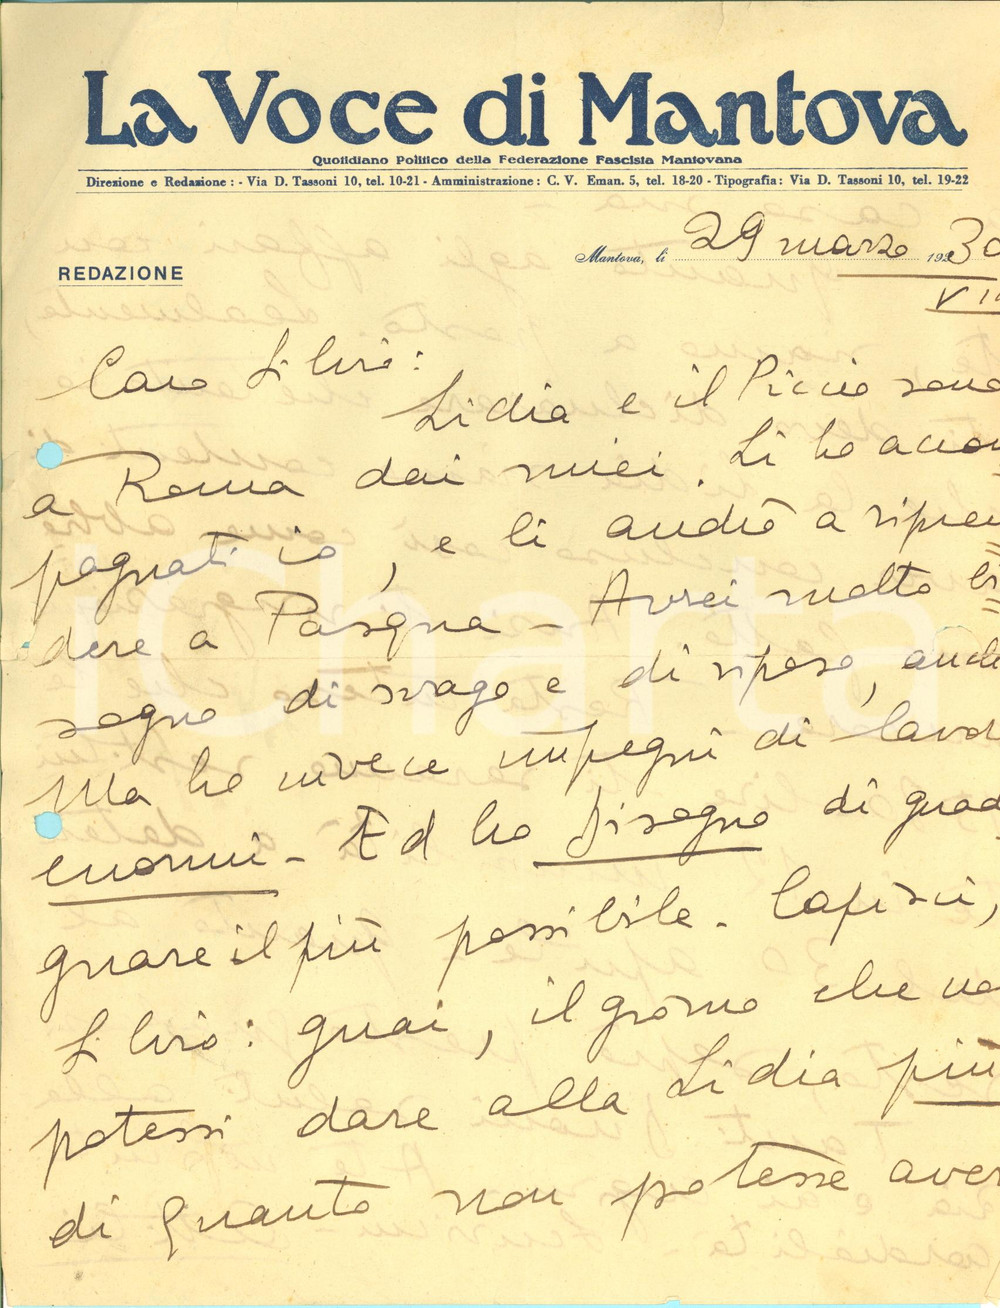 La Voce di Mantova
Quotidiano Politico della Federazione Fascista Mantovana
Direzione e Redazione: - Via D. Tassoni 10, tel. 10-21 - Amministrazione: C. V. Eman. 5, tel. 18-20 - Tipografia: Via D. Tassoni 10, tel. 19-22
Mantova, li 29 marzo 1930
VIII
REDAZIONE
Caro Silvio:
Lidia e il Piccio sono
a Roma dai miei. Li ho accom
pagnati io, e li andrò a ripren
dere a Pasqua - Avrei molto bi
sogno di svago e di riposo, anch
Ma ho invece impegni di lavor
enormi - Ed ho bisogno di guad
gnare il più possibile - Capisci,
Silvio: guai, il giorno che no
potessi dare alla Lidia più
di quanto non potesse aver
iCharta